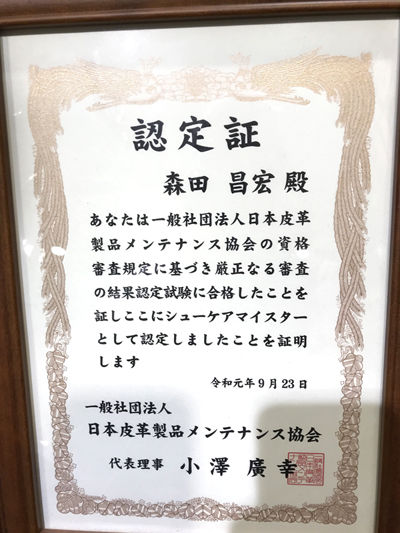 認定証
森田 昌宏 殿
あなたは一般社団法人日本皮革
製品メンテナンス協会の資格
審査規定に基づき厳正なる審査
の結果認定試験に合格したことを
証しここにシューケアマイスター
として認定しましたことを証明
します
令和元年9月23日
一般社団法人
日本皮革製品メンテナンス協会
代表理事 小澤 廣幸